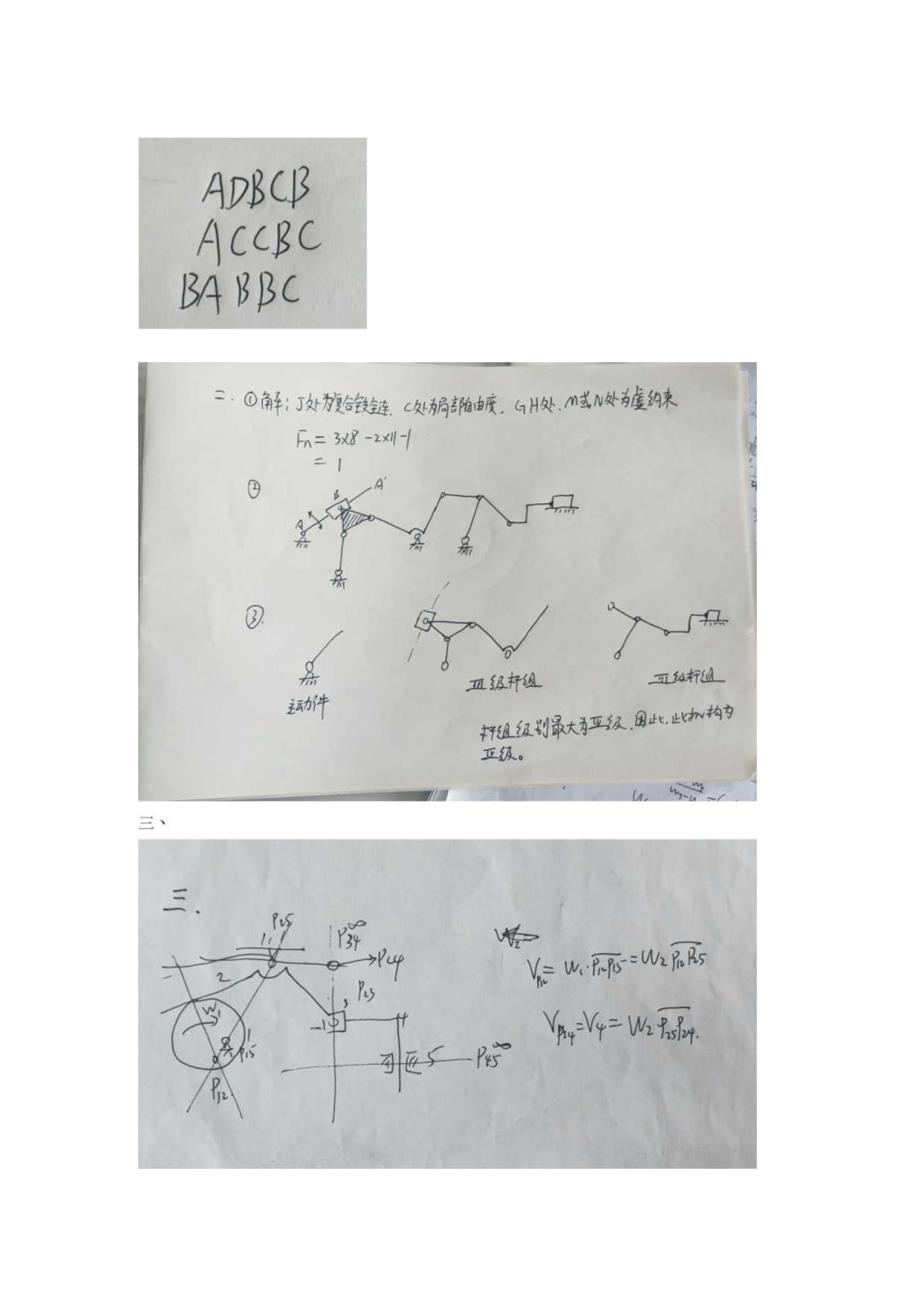 ADBCB
ACCBC
BABBC
二.①解:J处为复合铰链.C处为局部自由度.GH处.M或N处为虚约束
Fn=3×8-2×11-1
=1
②
A B A'
③.
主动件
III级杆组
II级杆组
杆组级别最大为III级,因此,此机构为
III级。
三、
三.
P25
P34∞
P24
2
P23
3
W1
1
P15
4
5
P45∞
P12
V2
VP12=W1·P12P15=W2P12P25
VP24=V4=W2P25P24.